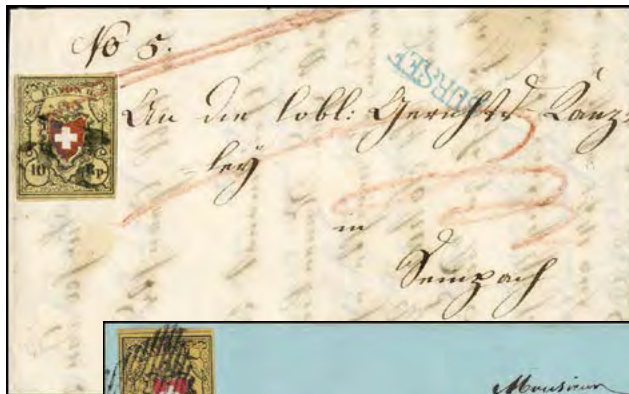 No 5.
RAYON II.
SURSEE
An die Lobl: Gerichts Canz=
ley
10 Rp.
in
Sempach
Monsieur